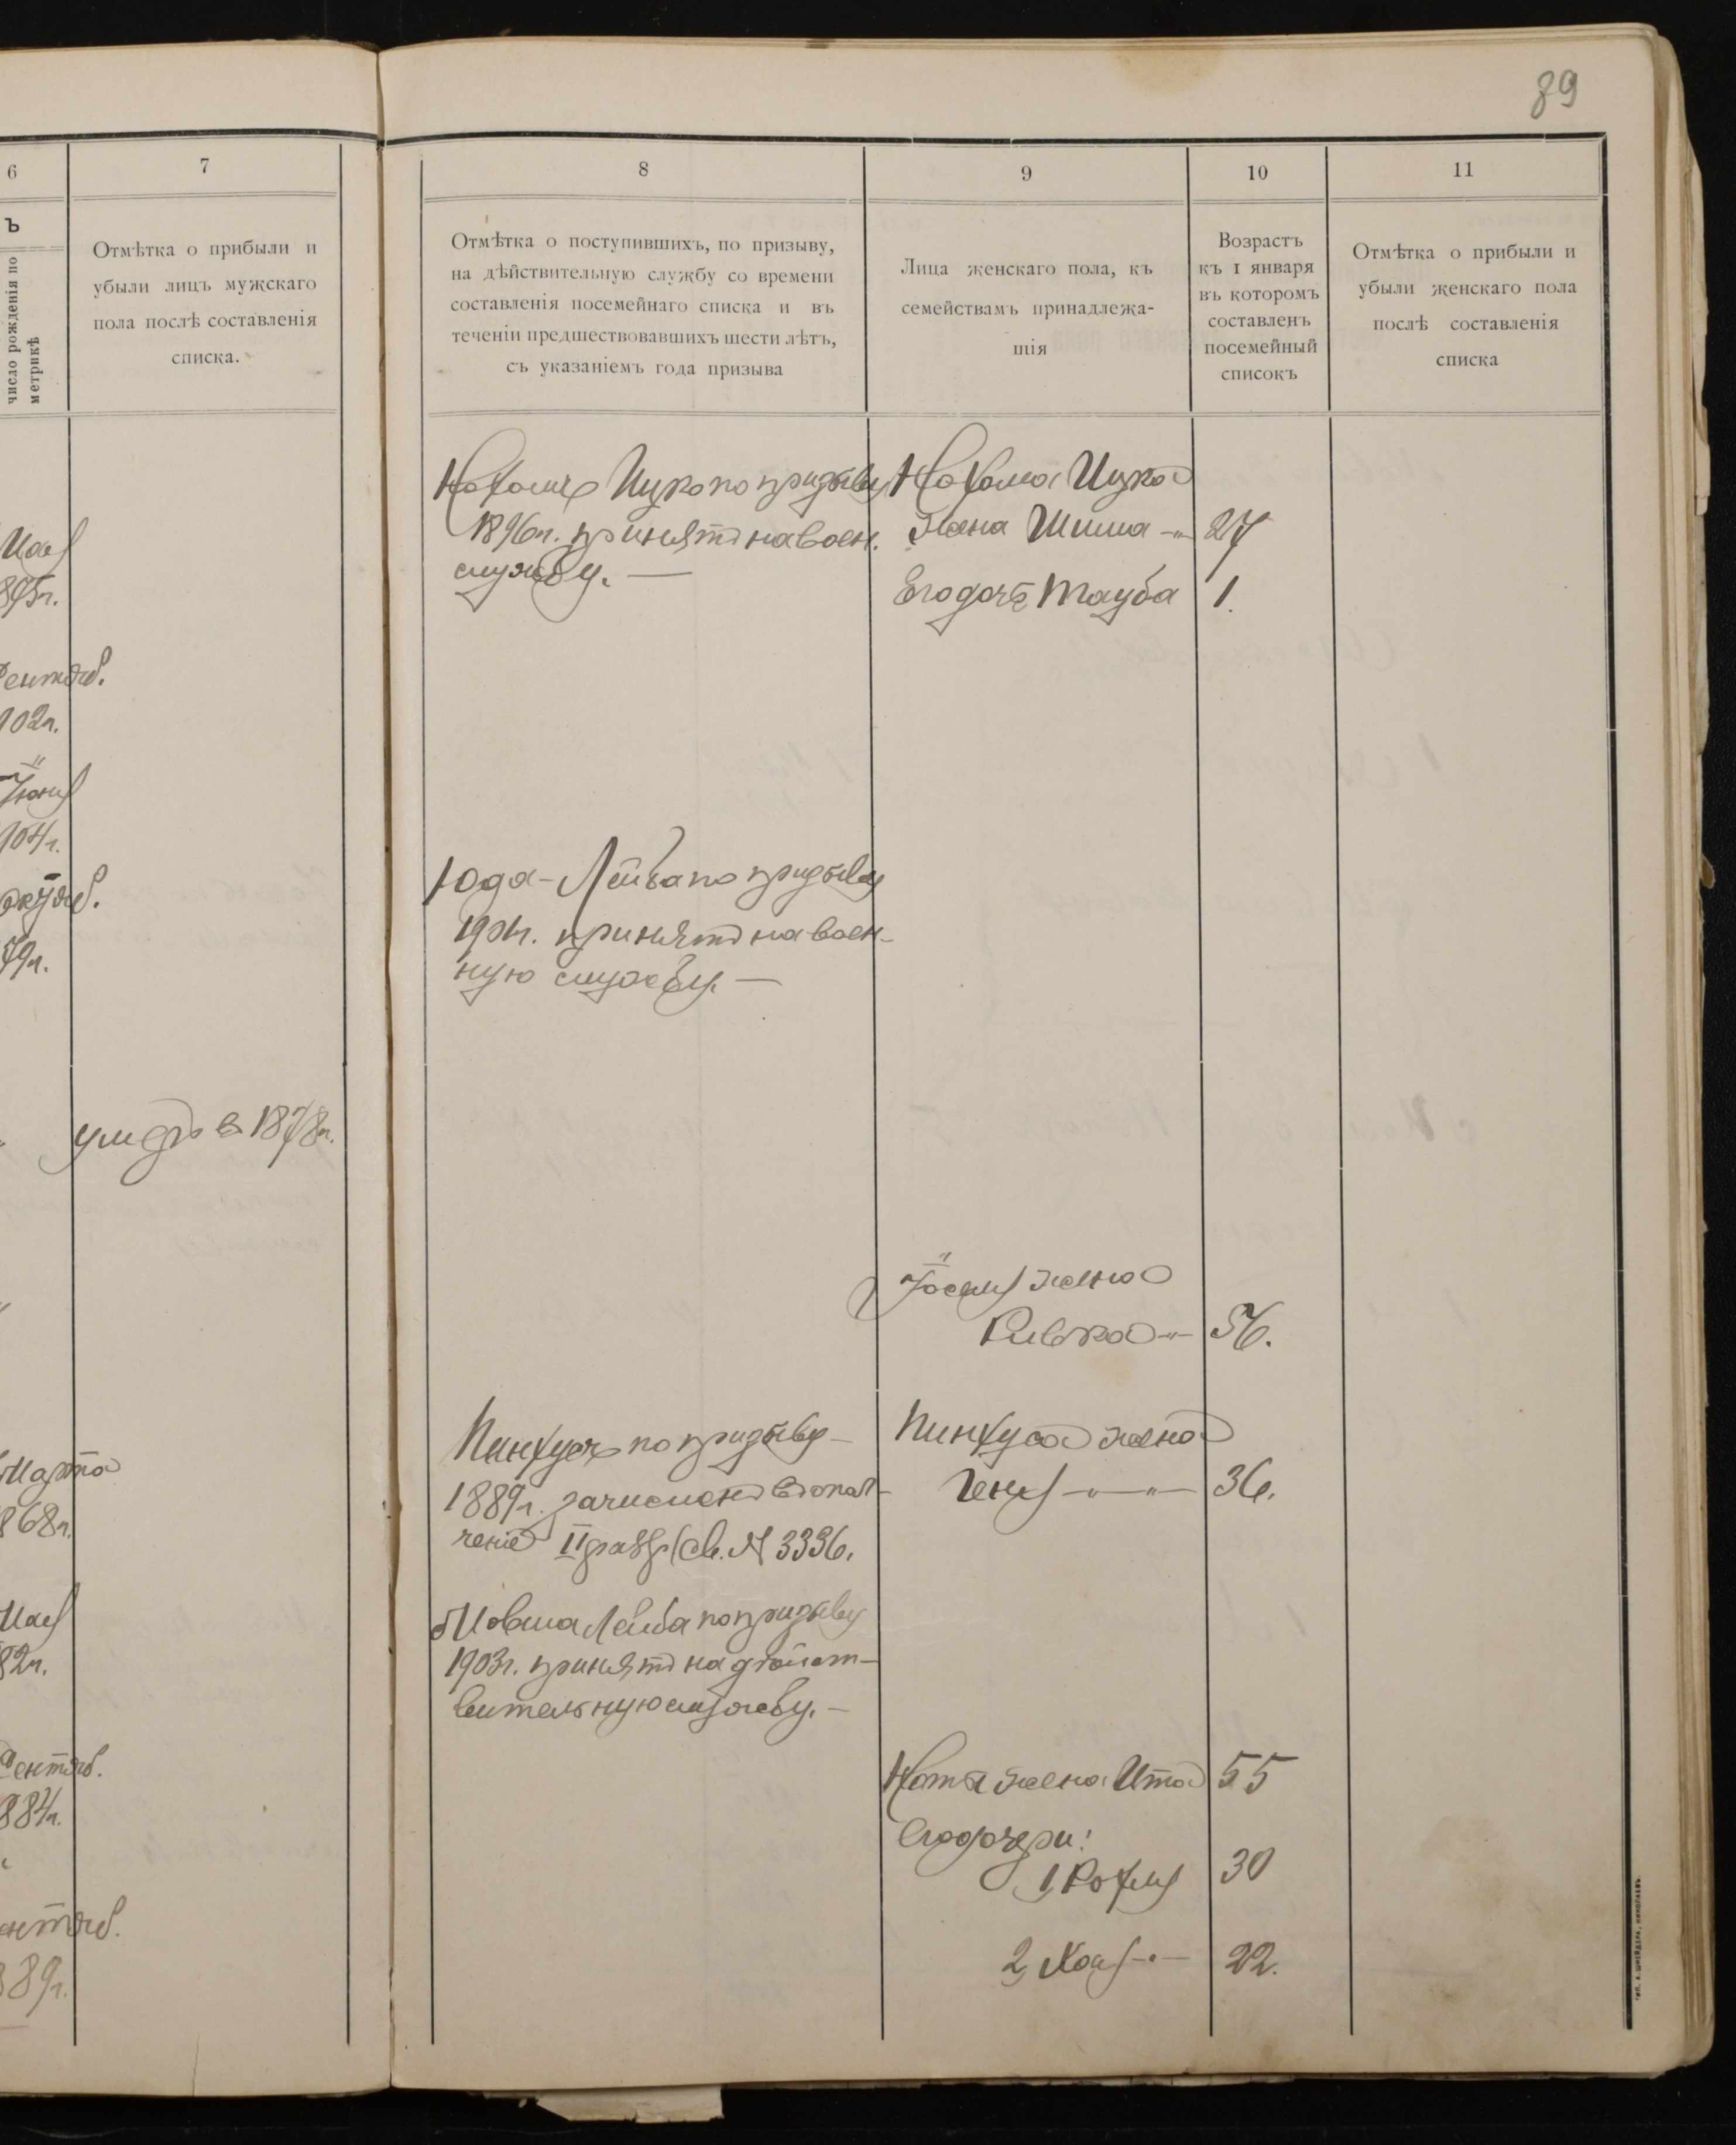 89
6
7
8
9
10
11
Ъ
число рожденія по
метрикѣ
Отмѣтка о прибыли и
убыли лицъ мужскаго
пола послѣ составленія
списка.
Отмѣтка о поступившихъ, по призыву,
на дѣйствительную службу со времени
составленія посемейнаго списка и въ
теченіи предшествовавшихъ шести лѣтъ,
съ указаніемъ года призыва
Лица женскаго пола, къ
семействамъ принадлежа-
щія
Возрастъ
къ 1 января
въ которомъ
составленъ
посемейный
списокъ
Отмѣтка о прибыли и
убыли женскаго пола
послѣ составленія
списка
Мая
895г.
Сентяб.
902г.
Іюня
904г.
Октяб.
79г.
умеръ в 1878г.
Марта
868г.
Мая
82г.
Сентяб.
884г.
ентяб.
889г.
Нахомъ Ицко по призыву
1896г. принятъ на воен.
службу. —
Юда-Лейба по призыву
1901г. принятъ на воен-
ную службу. —
Пинхусъ по призыву
1889г. зачисленъ в опол-
ченіе II разр. (св. № 3336.
Мовша Лейба по призыву
1903г. принятъ на дѣйст-
вительную службу. —
Нахома Ицка
жена Шима 27
Его дочь Тауба 1.
Іосея жена
Ривка 56.
Пинхуса жена
Геня 36.
Ноты жена Ита 55
Его дочери:
1, Рохля 30
2, Хая 22.